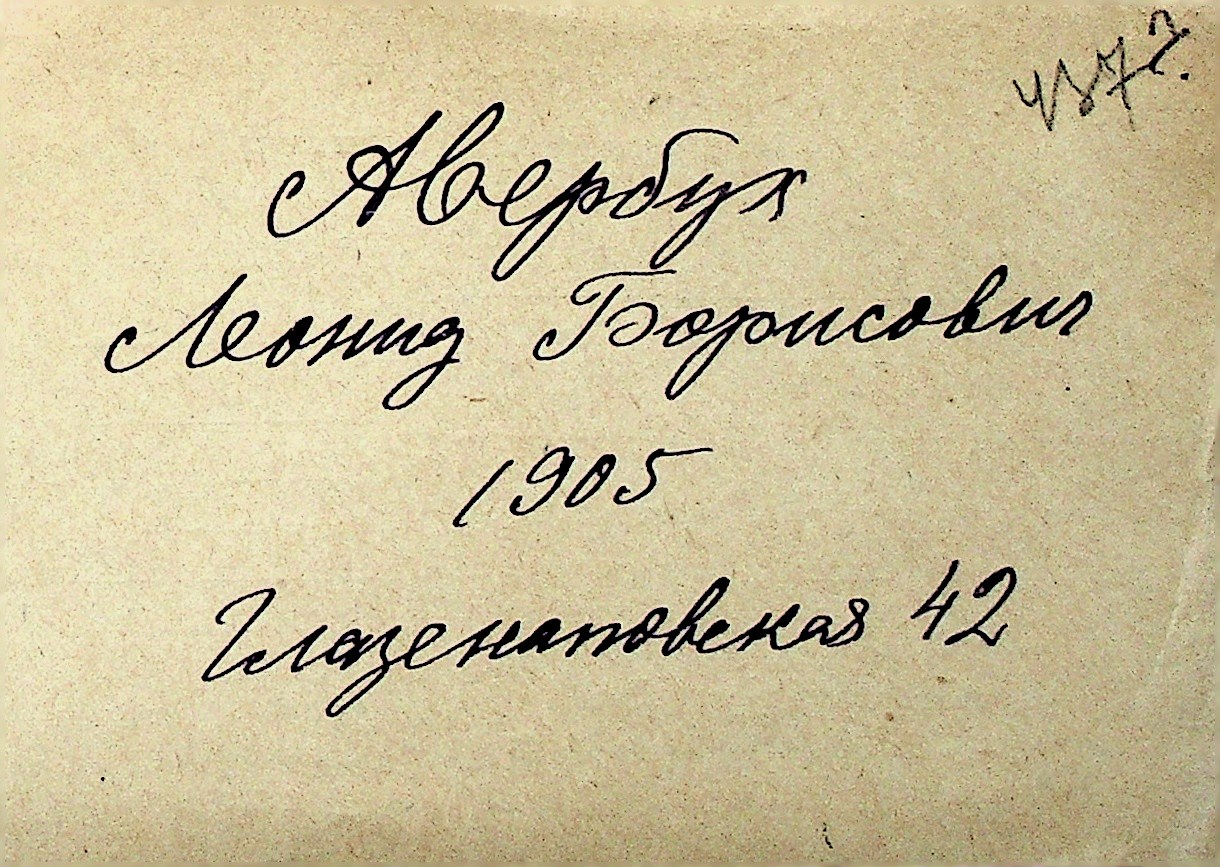 Авербух
Леонид Борисович
1905
Глазенаповская 42